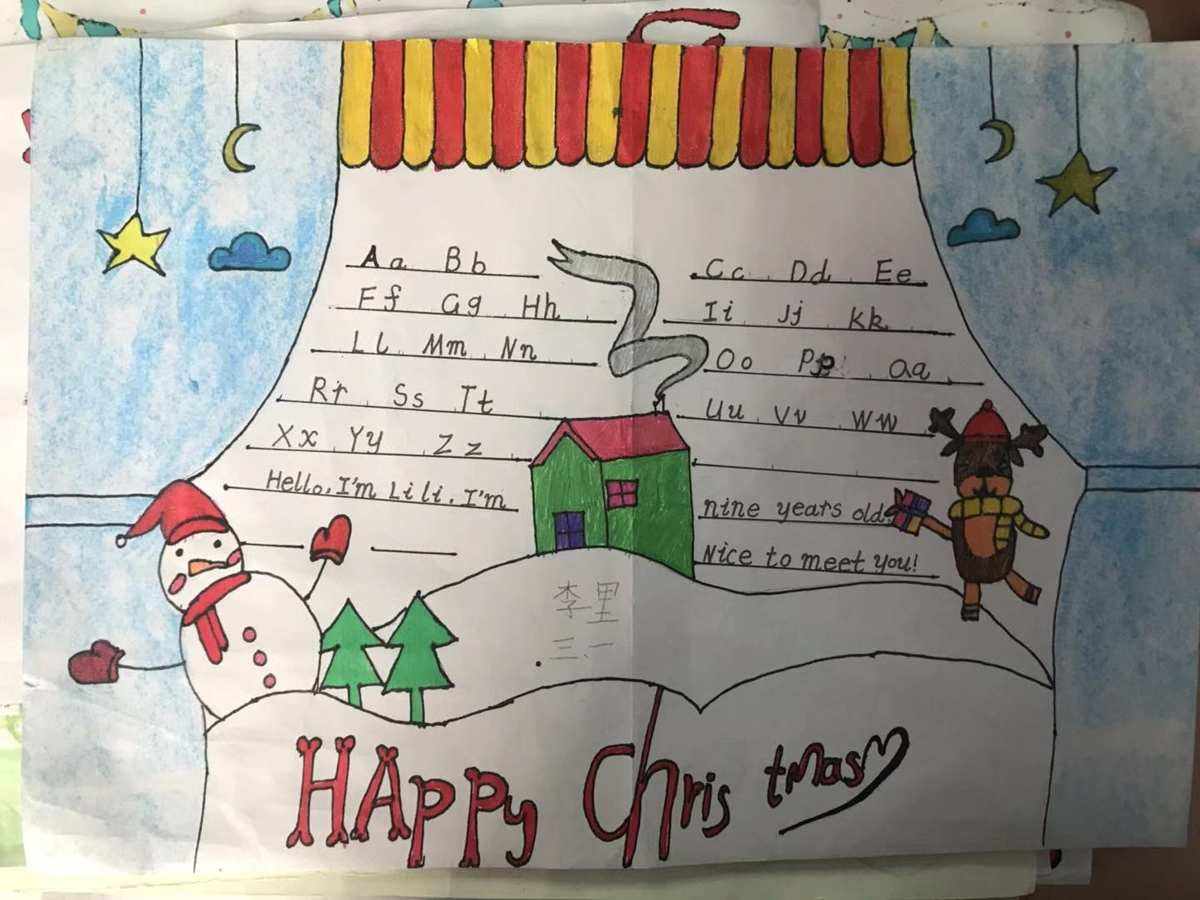 Aa Bb Cc Dd Ee
Ff Gg Hh Ii Jj Kk
Ll Mm Nn Oo Pp Qq
Rr Ss Tt Uu Vv Ww
Xx Yy Zz
Hello, I'm Lili. I'm nine years old.
Nice to meet you!
李里
三、一
HAppy Christmas